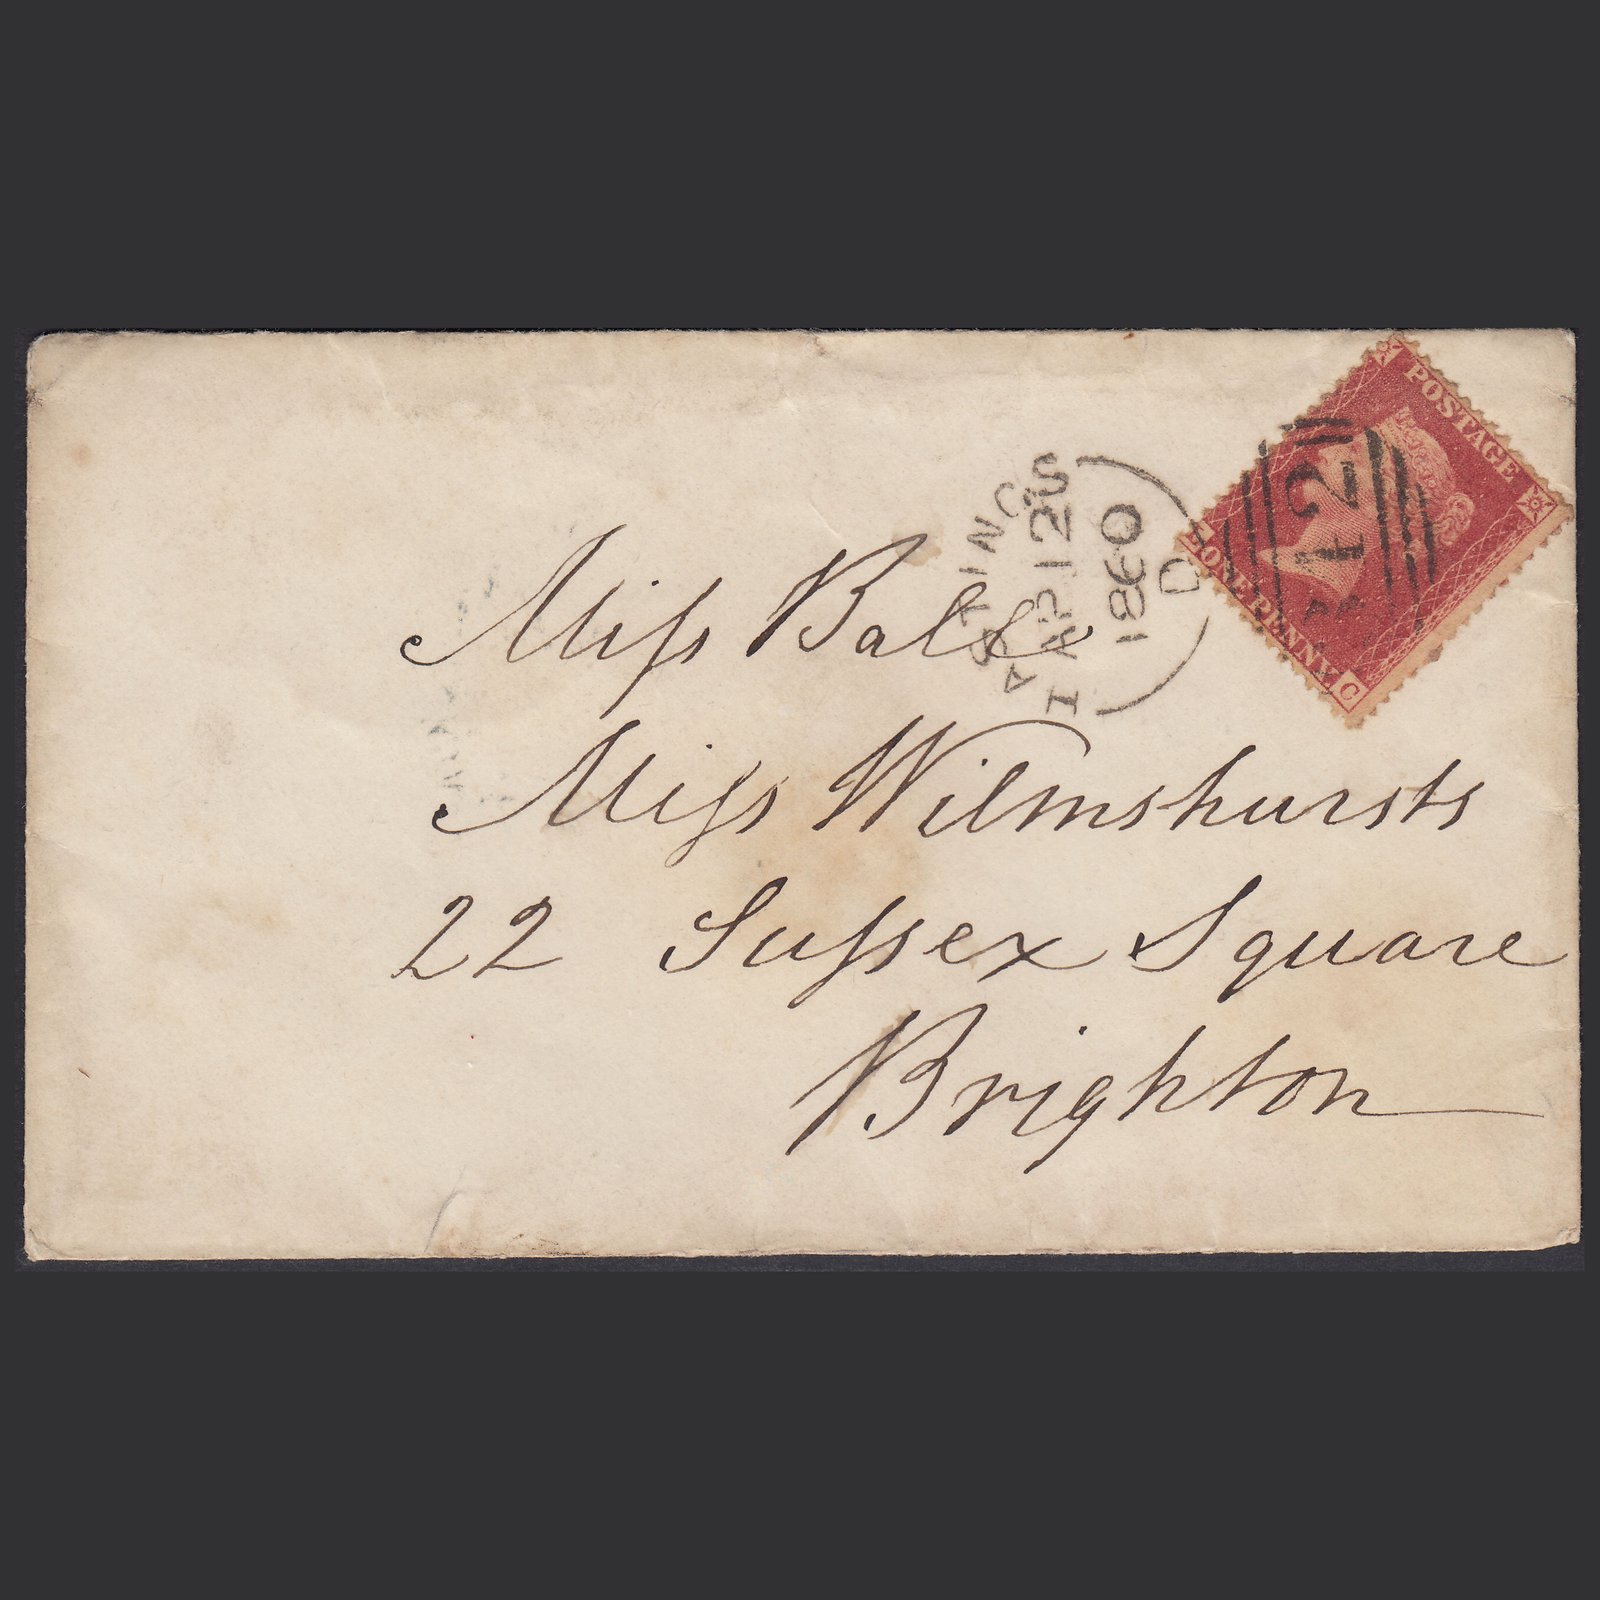 POSTAGE
ONE PENNY
C
HASTINGS
AP 12
1860
D
Miſs Ball
Miſs Wilmshursts
22 Suſsex Square
Brighton